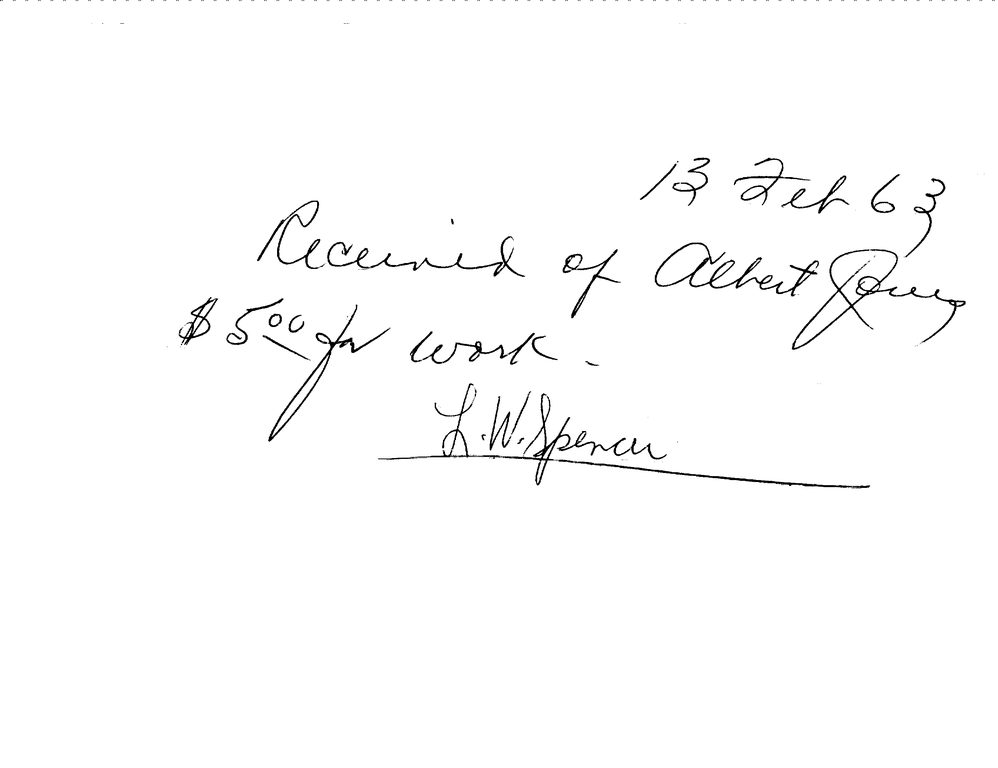 13 Feb 63
Received of Albert
$5.00 for work.
L.W. Spencer